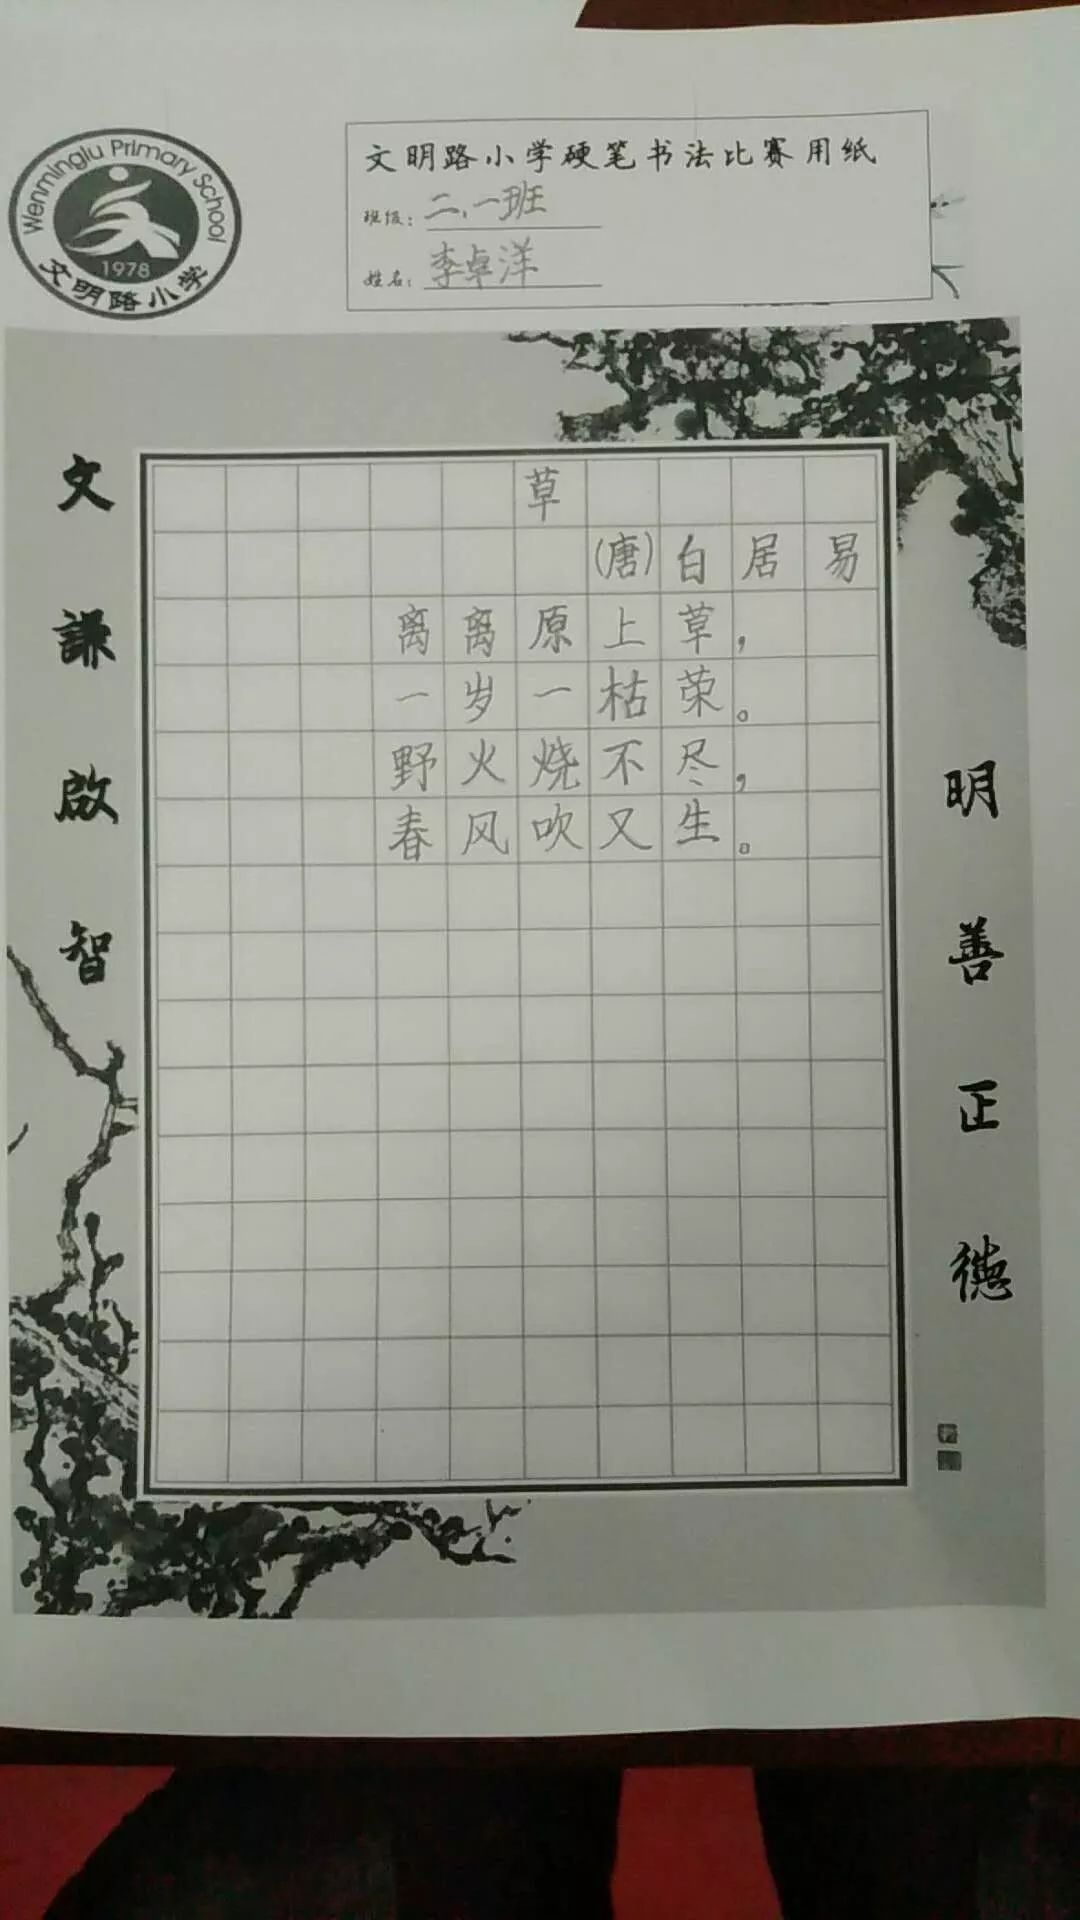 Wenminglu Primary School
1978
文明路小学
文明路小学硬笔书法比赛用纸
班级：二、一班
姓名：李卓洋
草
(唐)白居易
离离原上草，
一岁一枯荣。
野火烧不尽，
春风吹又生。
文謙啟智
明善正德